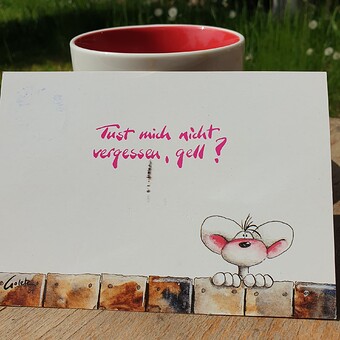 Tust mich nicht
vergessen, gell?